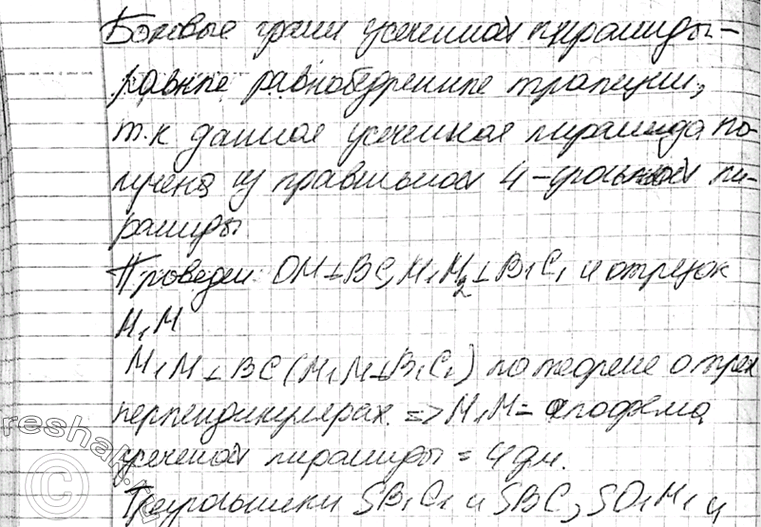 Боковые грани усеченной пирамиды-
равные равнобедренные трапеции,
т.к данная усеченная пирамида по-
лучена из правильной 4-угольной пи-
рамиды
Проведем OM⊥BC, M₁M₂⊥B₁C₁ и отрезок
M₁M
M₁M⊥BC (M₁M⊥B₁C₁) по теореме о трех
перпендикулярах. => M₁M = апофема
усеченной пирамиды = 4дм.
Треугольники SB₁C₁ и SBC, SO₁M₁ и
reshak.ru